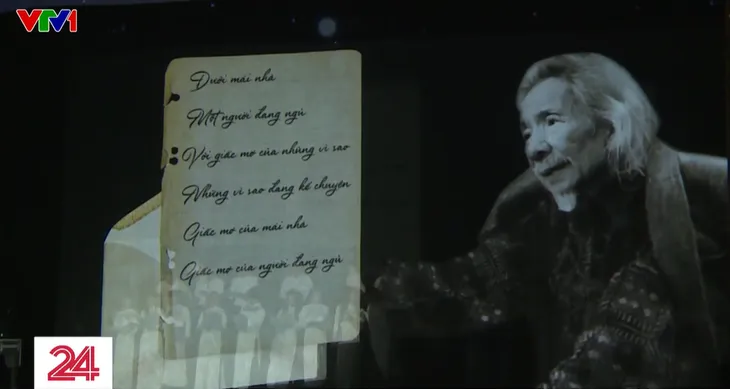 VTV1
Dưới mái nhà
Một người đang ngủ
Với giấc mơ của những vì sao
Những vì sao đang kể chuyện
Giấc mơ của mái nhà
Giấc mơ của người đang ngủ
24